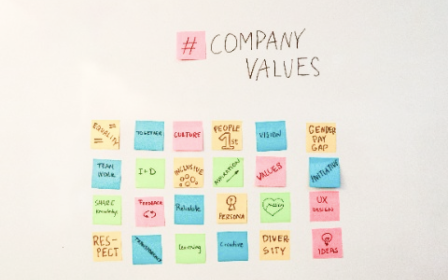 # COMPANY
VALUES
EQUALITY
TOGETHER
CULTURE
PEOPLE
1st
VISION
GENDER
PAY
GAP
TEAM
WORK
I&D
INCLUSIVE
INNOVATION
VALUES
INITIATIVE
SHARE
Knowledge
Feedback
Reliable
PERSONA
UX
DESIGN
RES-
PECT
TRANSPARENCY
Learning
Creative
DIVER
SITY
IDEAS